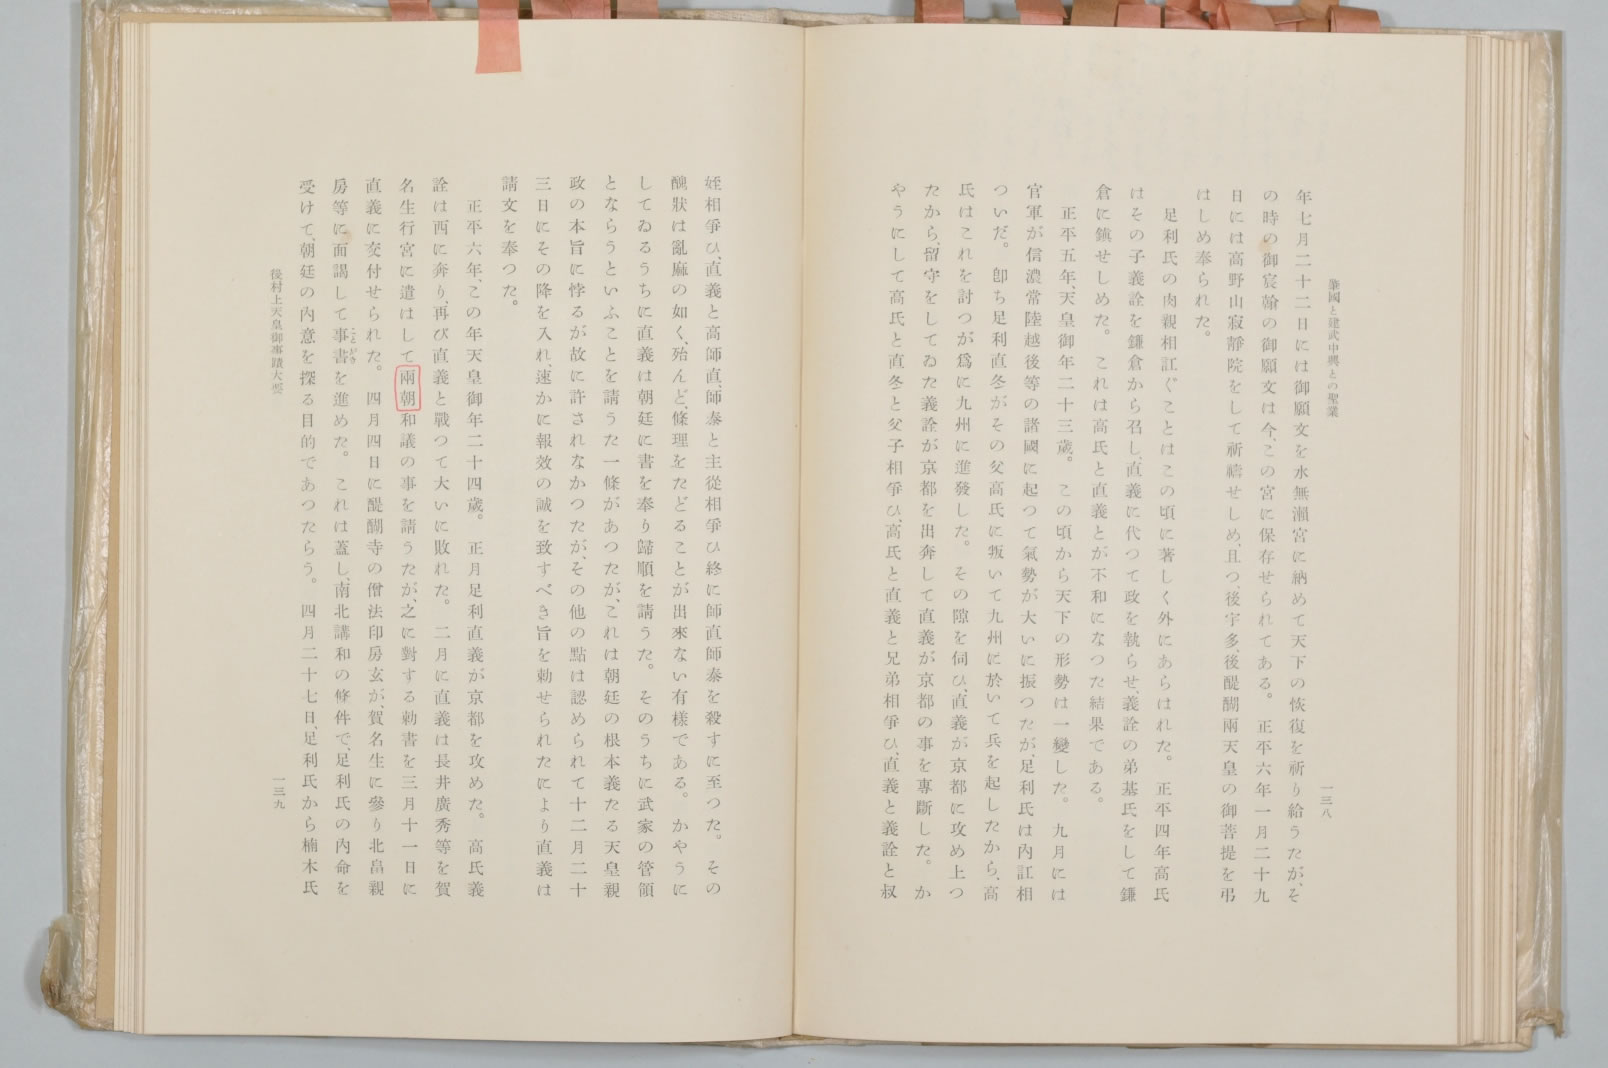 肇國と建武中興との聖業
一三八
年七月二十二日には御願文を水無瀨宮に納めて天下の恢復を祈り給うたが、そ
の時の御宸翰の御願文は今、この宮に保存せられてある。　正平六年一月二十九
日には高野山寂靜院をして祈禱せしめ、且つ、後宇多、後醍醐兩天皇の御菩提を弔
はしめ奉られた。
足利氏の內親相訌ぐことはこの頃に著しく外にあらはれた。　正平四年高氏
はその子義詮を鎌倉から召し、直義に代つて政を執らせ、義詮の弟基氏をして鎌
倉に鎭せしめた。　これは高氏と直義とが不和になつた結果である。
正平五年、天皇御年二十三歲。　この頃から天下の形勢は一變した。　九月には
官軍が信濃常陸越後等の諸國に起つて氣勢が大いに振つたが、足利氏は內訌相
ついだ。　卽ち足利直冬がその父高氏に叛いて九州に於いて兵を起したから、高
氏はこれを討つが爲に九州に進發した。　その隙を伺ひ、直義が京都に攻め上つ
たから、留守をしてゐた義詮が京都を出奔して直義が京都の事を專斷した。　か
やうにして高氏と直冬と父子相爭ひ、高氏と直義と兄弟相爭ひ、直義と義詮と叔
姪相爭ひ、直義と高師直、師泰と主從相爭ひ終に師直師泰を殺すに至つた。　その
醜狀は亂麻の如く、殆んど、條理をたどることが出來ない有樣である。　かやうに
してゐるうちに直義は朝廷に書を奉り歸順を請うた。　そのうちに武家の管領
とならうといふことを請うた一條があつたが、これは朝廷の根本義たる天皇親
政の本旨に悖るが故に許されなかつたが、その他の點は認められて十二月二十
三日にその降を入れ、速かに報效の誠を致すべき旨を勅せられたにより直義は
請文を奉つた。
正平六年、この年天皇御年二十四歲。　正月足利直義が京都を攻めた。　高氏義
詮は西に奔り、再び直義と戰つて大いに敗れた。　二月に直義は長井廣秀等を賀
名生行宮に遣はして兩朝和議の事を請うたが、之に對する勅書を三月十一日に
直義に交付せられた。　四月四日に醍醐寺の僧法印房玄が、賀名生に參り北畠親
房等に面謁して事書ことがきを進めた。　これは蓋し、南北講和の條件で、足利氏の內命を
受けて、朝廷の內意を探る目的であつたらう。　四月二十七日、足利氏から楠木氏
後村上天皇御事蹟大要
一三九